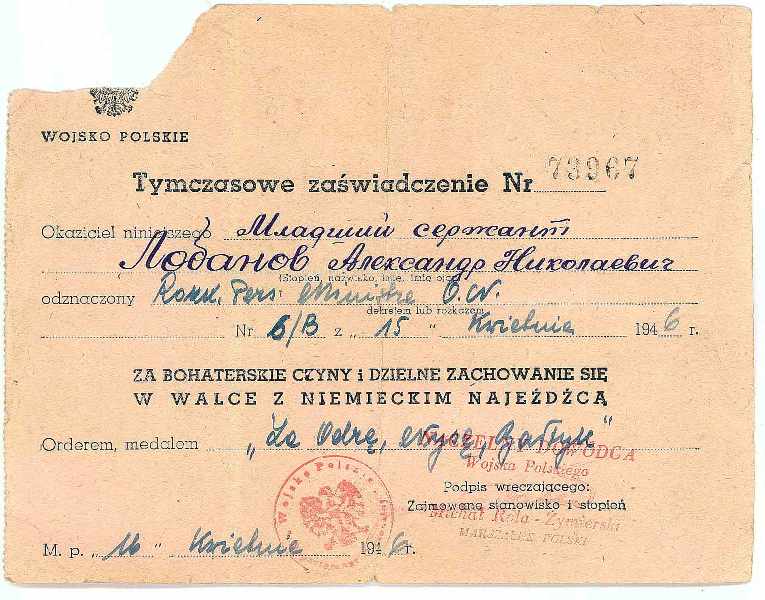 WOJSKO POLSKIE
Tymczasowe zaświadczenie Nr 73967
Okaziciel niniejszego Младший сержант
Лобанов Александр Николаевич
(Stopień, nazwisko, imię, imię ojca)
odznaczony Rozk. Pers. Ministra O.N.
dekretem lub rozkazem
Nr 6/B z "15" Kwietnia 1946 r.
ZA BOHATERSKIE CZYNY i DZIELNE ZACHOWANIE SIĘ
W WALCE Z NIEMIECKIM NAJEŹDŹCĄ
Orderem, medalem „Za Odrę, Nysę, Bałtyk"
NACZELNY DOWÓDCA
Wojska Polskiego
Podpis wręczającego:
Zajmowane stanowisko i stopień
Michał Rola-Żymierski
MARSZAŁEK POLSKI
Wojsko Polskie
M. p. „16" Kwietnia 1946 r.